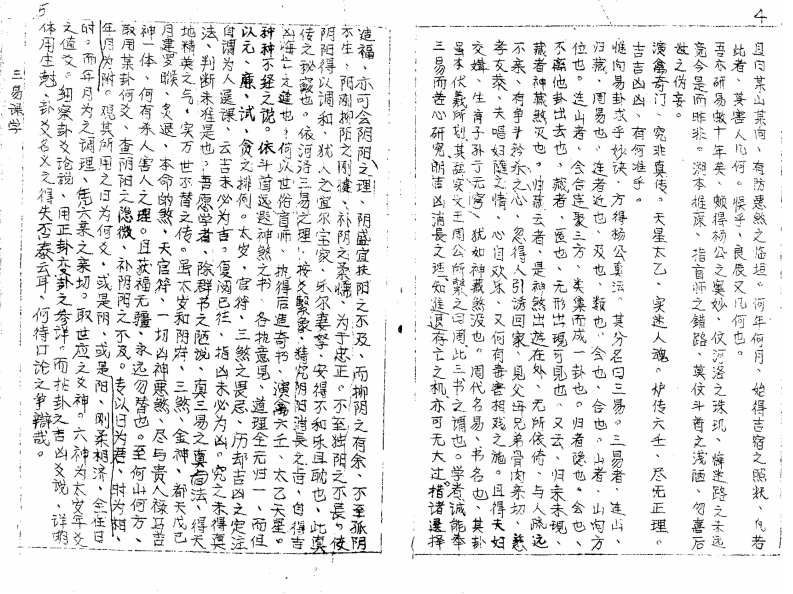 4
且曰某山某向，有防恶煞之临垣。何年何月，始得吉宿之照狀，凡若
此者，莫害人几何。恨乎，良辰又几何也。
吾亦研易数十年矣，颇得杨公之奥妙，仗河洛之珠玑，悔迷路之未远
觉今是而昨非。溯本推深，指盲师之錯路，莫仗斗首之浅陋，勿喜后
世之伪妄。
演禽奇门，究非真传。天星太乙，实迷人魂。炉传六壬，尽无正理。
吉吉凶凶，有何准乎。
惟向易卦求乎妙诀，方得杨公真法。其分名曰三易。三易者，连山、
归藏、周易也。连者近也，及也，数也，合也，合也。山者，山向方
位也。连山者，会合连聚三方，类集而成一卦也。归者隐也。会也，
不离他卦出去也。藏者，匿也，无形出现可見也。又云，归未未现，
藏者神藏煞灭也。归藏云者，是神煞出遊在外，无所依倚，与人疏远
不亲，有争斗矜杀之心，忽得人引诱回家，見父母兄弟骨肉亲切，慈
孝友恭，夫唱妇随之情，心自欢乐，又何有毒害相残之施。且得夫妇
交媾，生育子孙于无穷，犹如神藏煞没也。周代名易，书名也，其卦
虽本伏羲所划，其辞实文王周公所繫之曰周，此三书之谓也。学者诚能举
三易而苦心研究，明吉凶消長之理，知進退存亡之机，亦可无大过。措诸選择
5
造福，亦可会阴阳之理，阴盛宜扶阳之不及，而抑阴之有余，不至孤阴
不生，阳刚抑阳之刚健，补阴之柔懦，为于忠正。不至独阳之不長。使
阴阳得以调和，犹人之宜尔室家，乐尔妻孥，安得不和乐且耽也，此真
传之秘竅也。依河洛三易之理，按爻繫象，猜究阴阳消長之语，自得吉
凶悔亡之造也。何以世俗盲师，执得后造奇书，演禽六壬，太乙天星。
种种不经之说。依斗首选題神煞之书，各执意見，道理全无归一，而但
以元，廉，武，贪之排例。太岁，官符，三煞之畏忌，历却吉凶之定注
自谓为人選课，云吉未必为吉。復阅已往，指凶未必为凶。究之未得真
法，判断未准是也。吾愿学者，除群书之陋说，真三易之真向法，得天
地精英之气，实万世不替之传。虽太岁和阴府，三煞，金神，都天戊己
月建罗睺，炙退，本命的煞，天官符，一切凶神悪煞，尽与贵人禄马吉
神一体，何有杀人害人之理。且获福无疆，永远勿替也。至何山何方，
取用某卦何爻，查阴阳之隐微，补阴阳之不及。专以日为君，时为相，
年月为附。观其所用之日为何爻，或是阴，或是阳，刚柔相济，全在日
时。而年月为之调理，凭六亲之亲切。取世应之爻神。六神为太岁年爻
之值爻。細察卦爻论説，用正卦变卦之参详。而拈卦之吉凶爻说，详明
体用生尅，卦爻名义之得失否泰云耳，何待口论之争辯哉。
三易课学